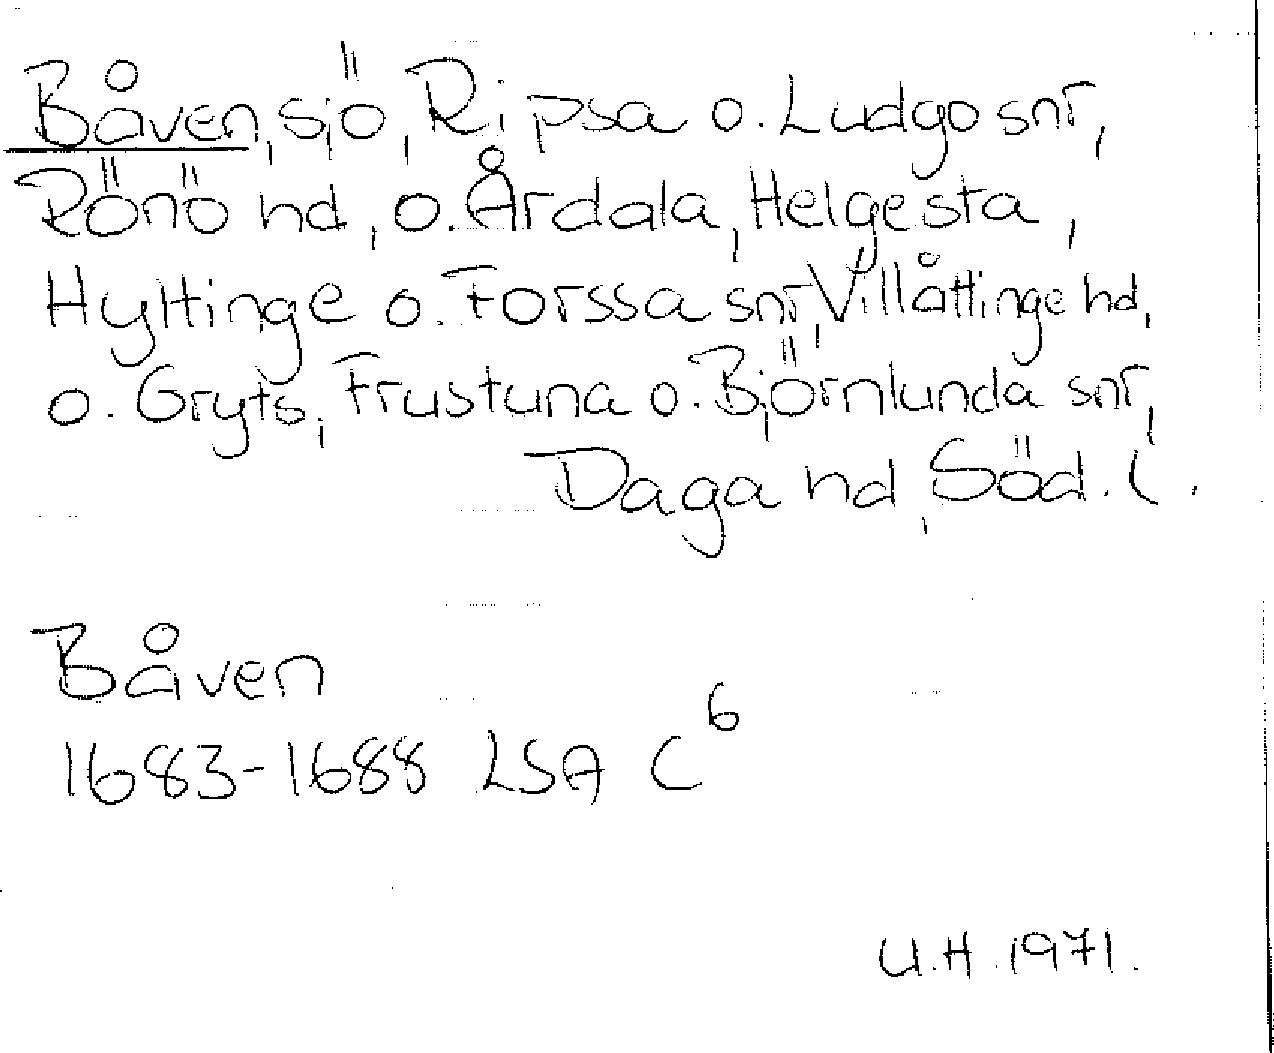 Båven, sjö, Ripsa o. Ludgo snr,
Rönö hd, o. Årdala, Helgesta,
Hyltinge o. Forssa snr, Villåttinge hd,
o. Gryts, Frustuna o. Björnlunda snr,
Daga hd, Söd. l.
Båven
1683-1688 LSA C⁶
U.H. 1971.